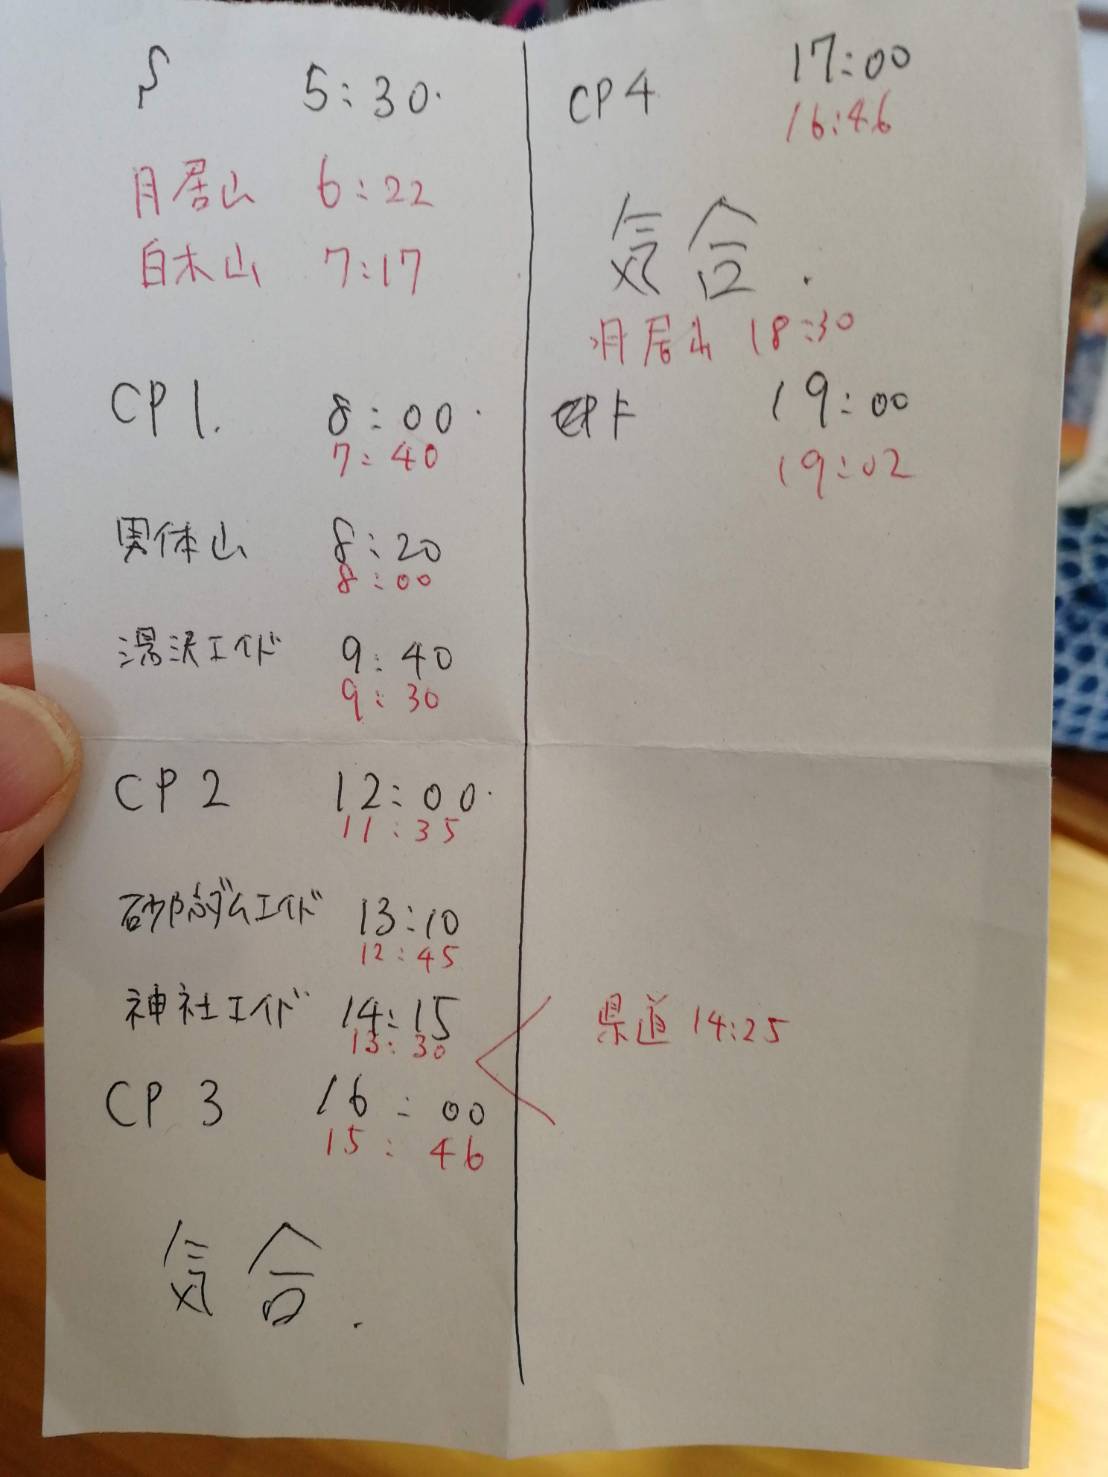 S 5:30
月居山 6:22
白木山 7:17
CP1. 8:00
7:40
男体山 8:20
8:00
湯沢エイド 9:40
9:30
CP2 12:00
11:35
ダムエイド 13:10
12:45
神社エイド 14:15
13:30
CP3 16:00
15:46
気合.
CP4 17:00
16:46
気合.
月居山 18:30
F 19:00
19:02
県道 14:25